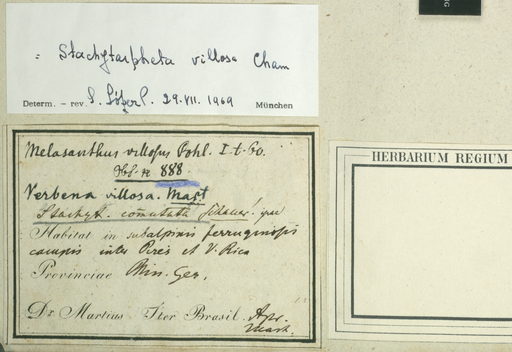 = Stachytarpheta villosa Cham
Determ. – rev. S. 29.VII.1969 München
Melasanthus villosus Pohl. I. t. 60.
Hb. n 888.
Verbena villosa. Mart
Stachyt. commutata Schauer!
Habitat in subalpinis ferruginosis
campis inter Pires et V. Rica
Provinciae Min. Ger.
Dr. Martius Iter Brasil. Apr.
Mart.
HERBARIUM REGIUM